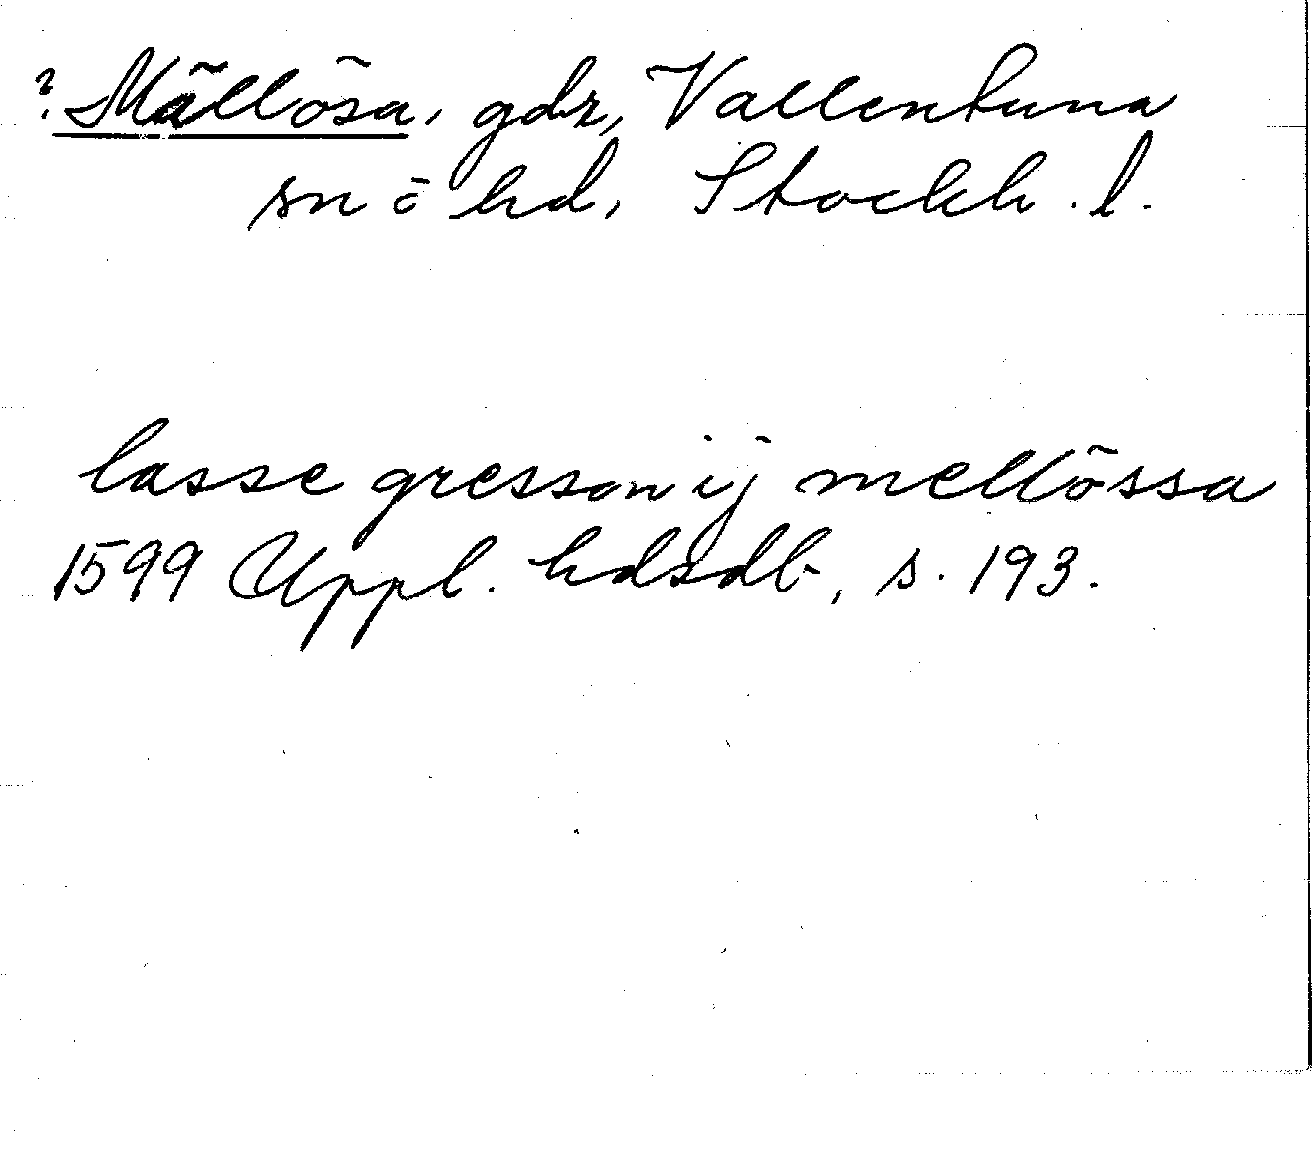 ? Mällösa, gdr, Vallentuna
sn o hd, Stockh. l.
lasse gresson ij mellössa
1599 Uppl. hdsdb, s. 193.